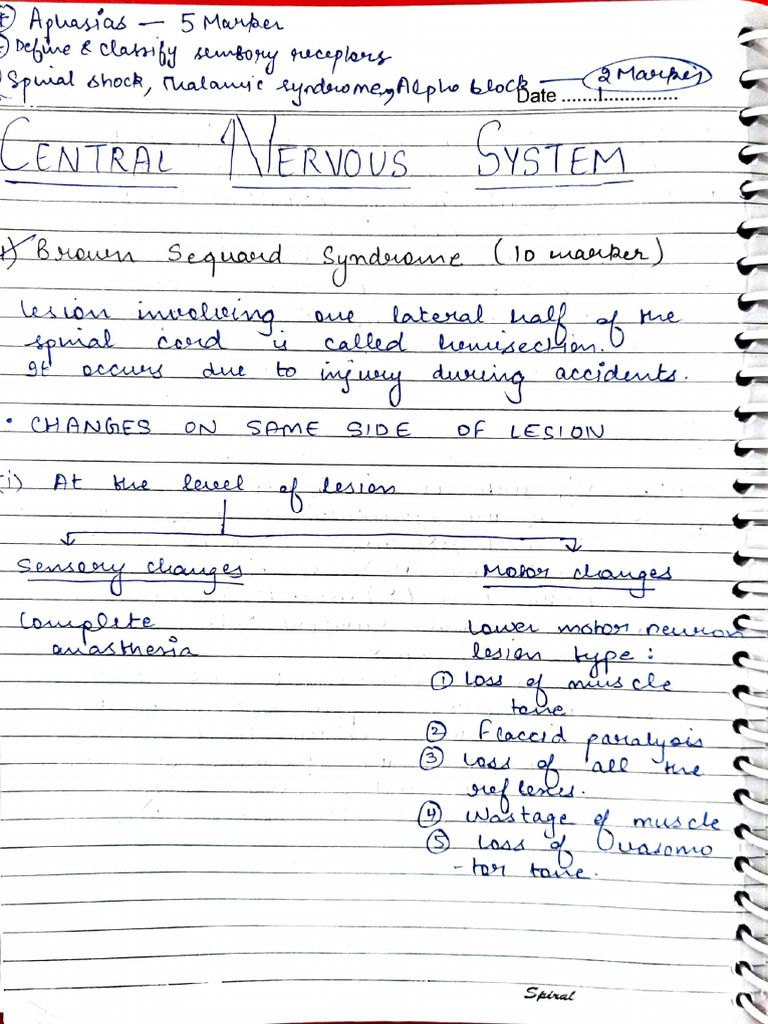 Aphasias — 5 Marker
Define & classify sensory receptors
Spinal shock, Thalamic syndrome, Alpha block — 2 Marker
Date
CENTRAL NERVOUS SYSTEM
Brown Sequard Syndrome (10 marker)
Lesion involving one lateral half of the
spinal cord is called hemisection.
It occurs due to injury during accidents.
• CHANGES ON SAME SIDE OF LESION
(i) At the level of lesion
Sensory changes
Complete
anasthesia
Motor changes
Lower motor neuron
lesion type :
① Loss of muscle
tone
② Flaccid paralysis
③ Loss of all the
reflexes.
④ Wastage of muscle
⑤ Loss of Vasomo
-tor tone.
Spiral